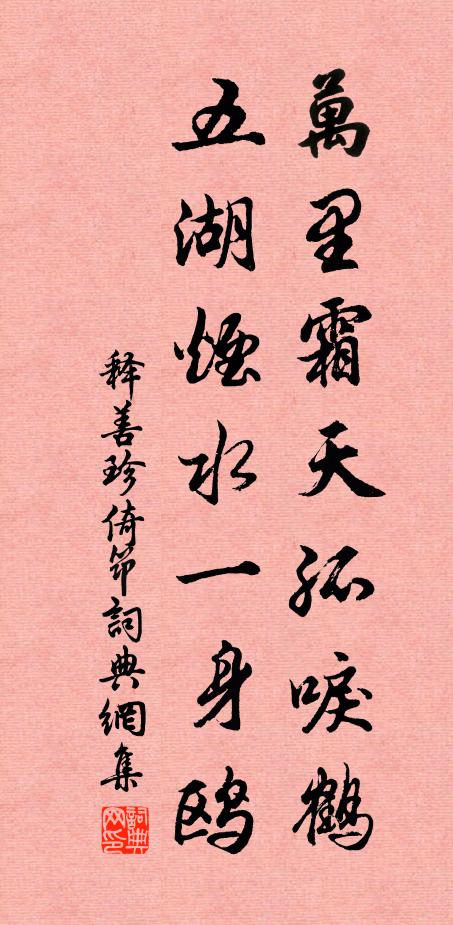 萬里霜天孤唳鶴
五湖煙水一身鷗
释善珍倚筇詞典網集
詞典网印